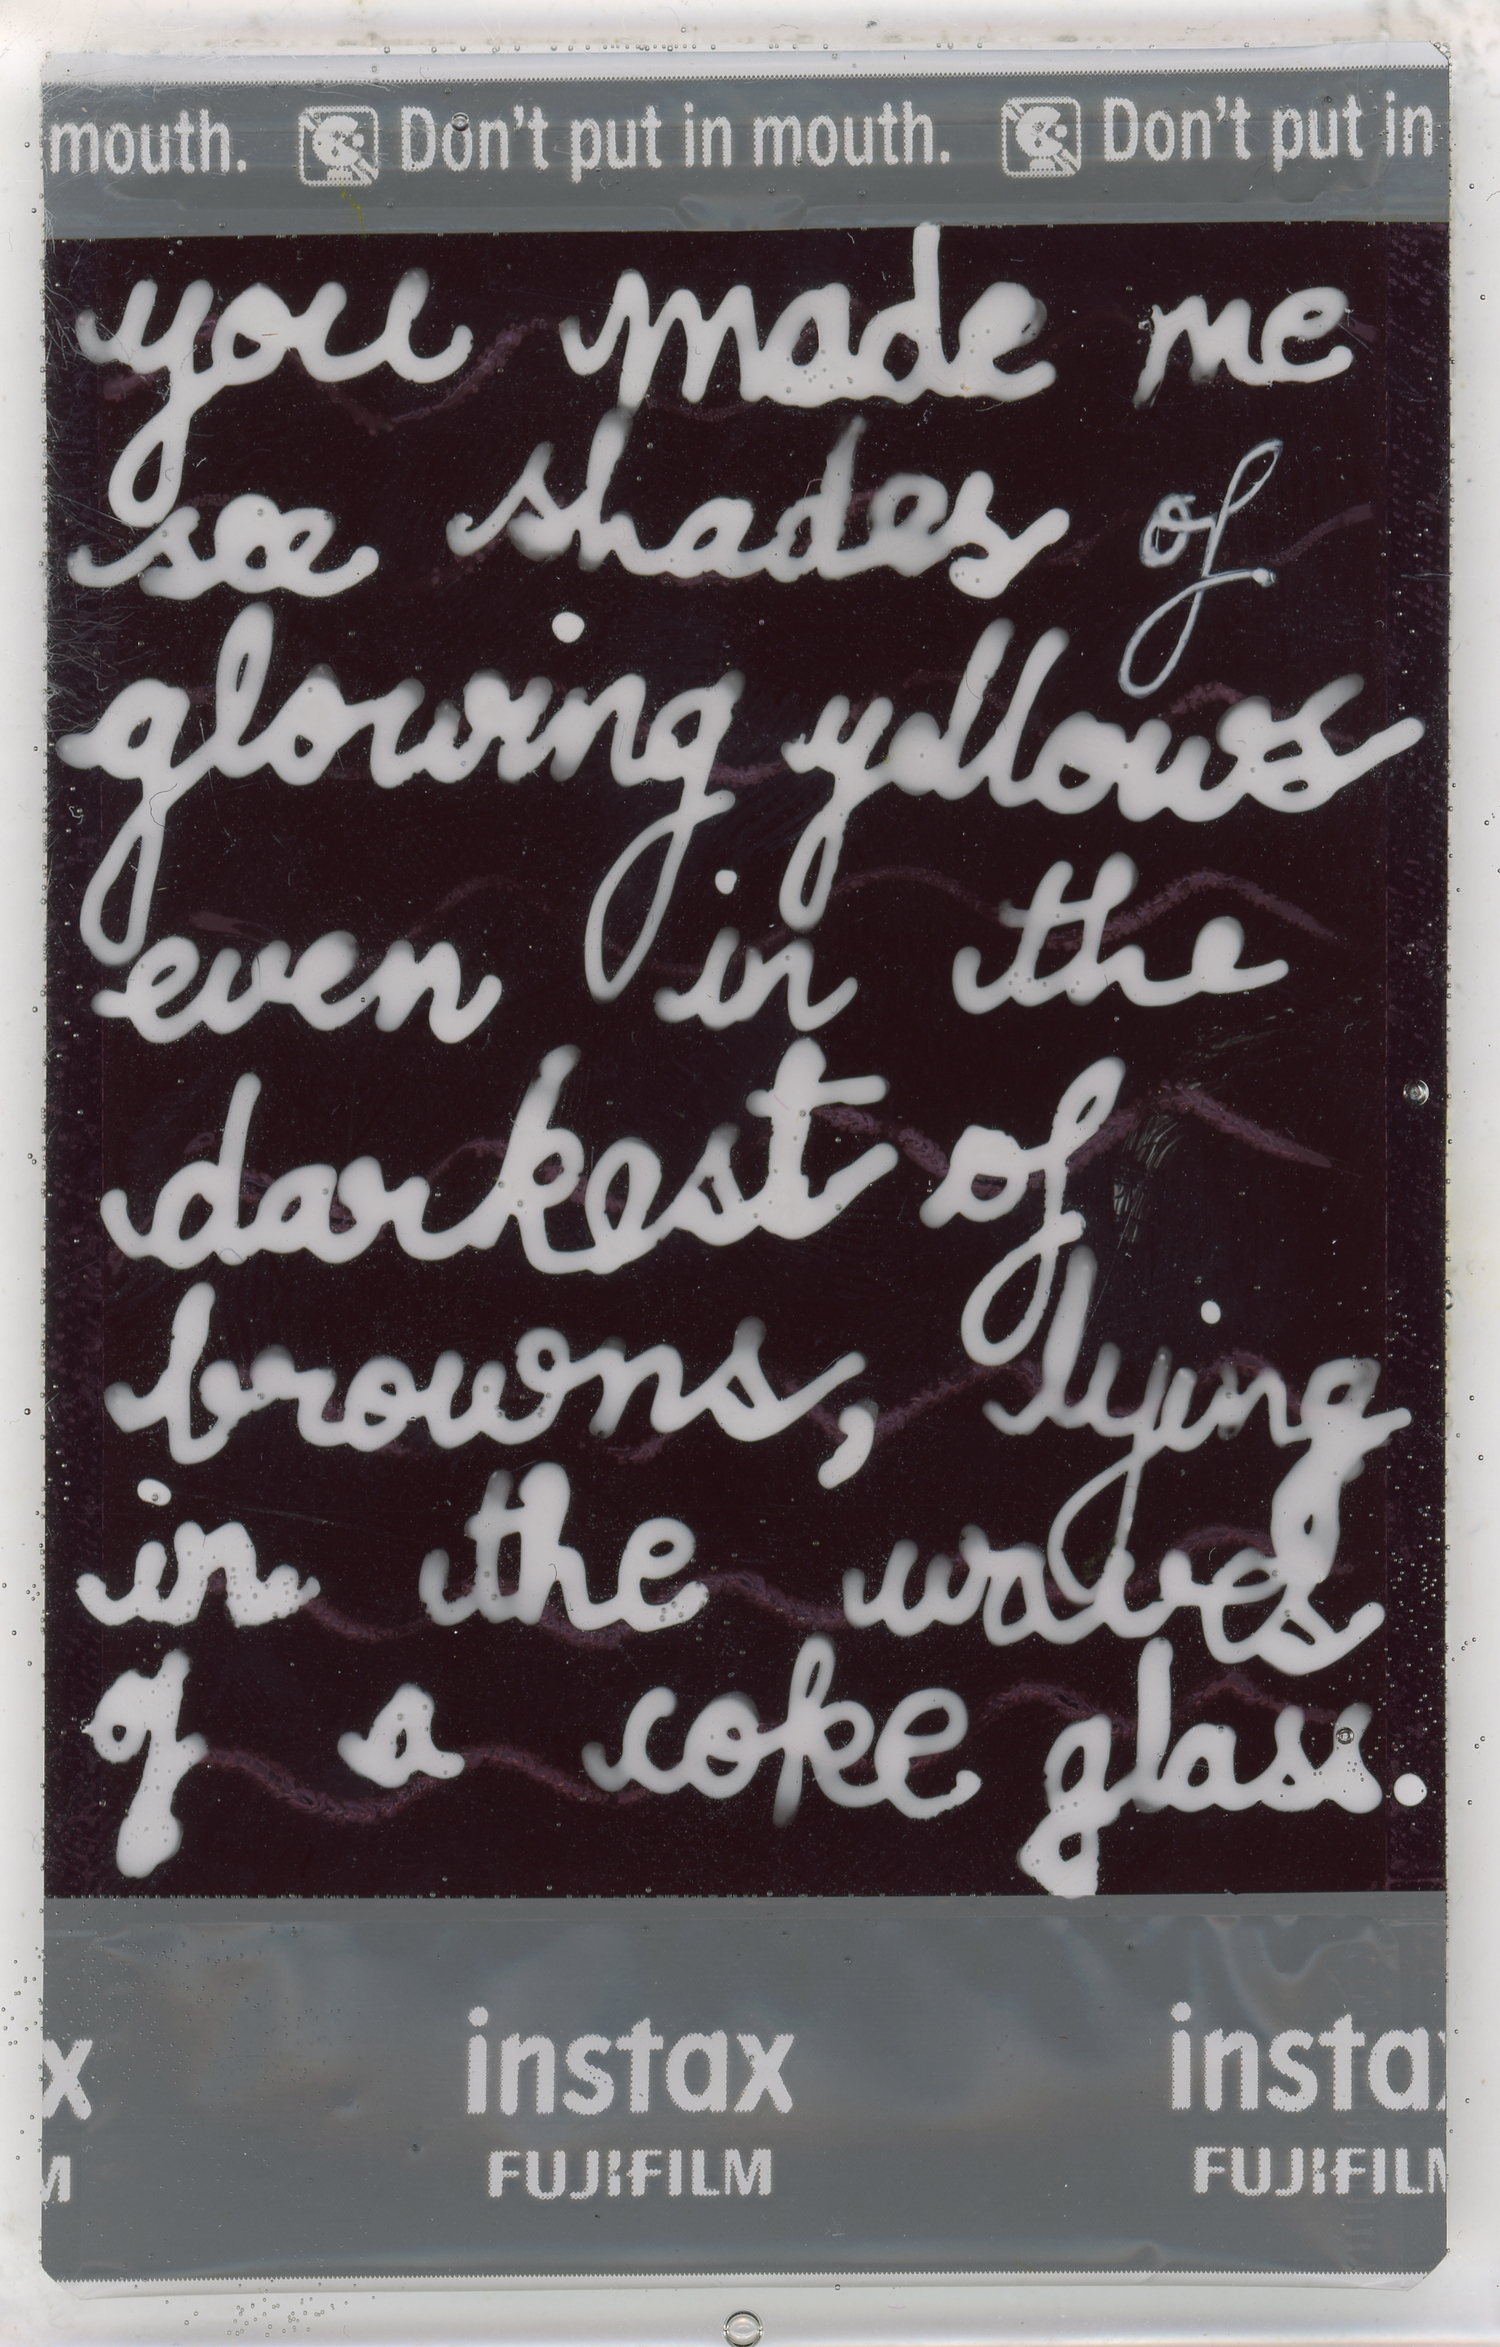 mouth. Don't put in mouth. Don't put in
you made me
see shades of
glowing yellows
even in the
darkest of
browns, lying
in the waves
of a coke glass.
x instax instax
M FUJIFILM FUJIFILM